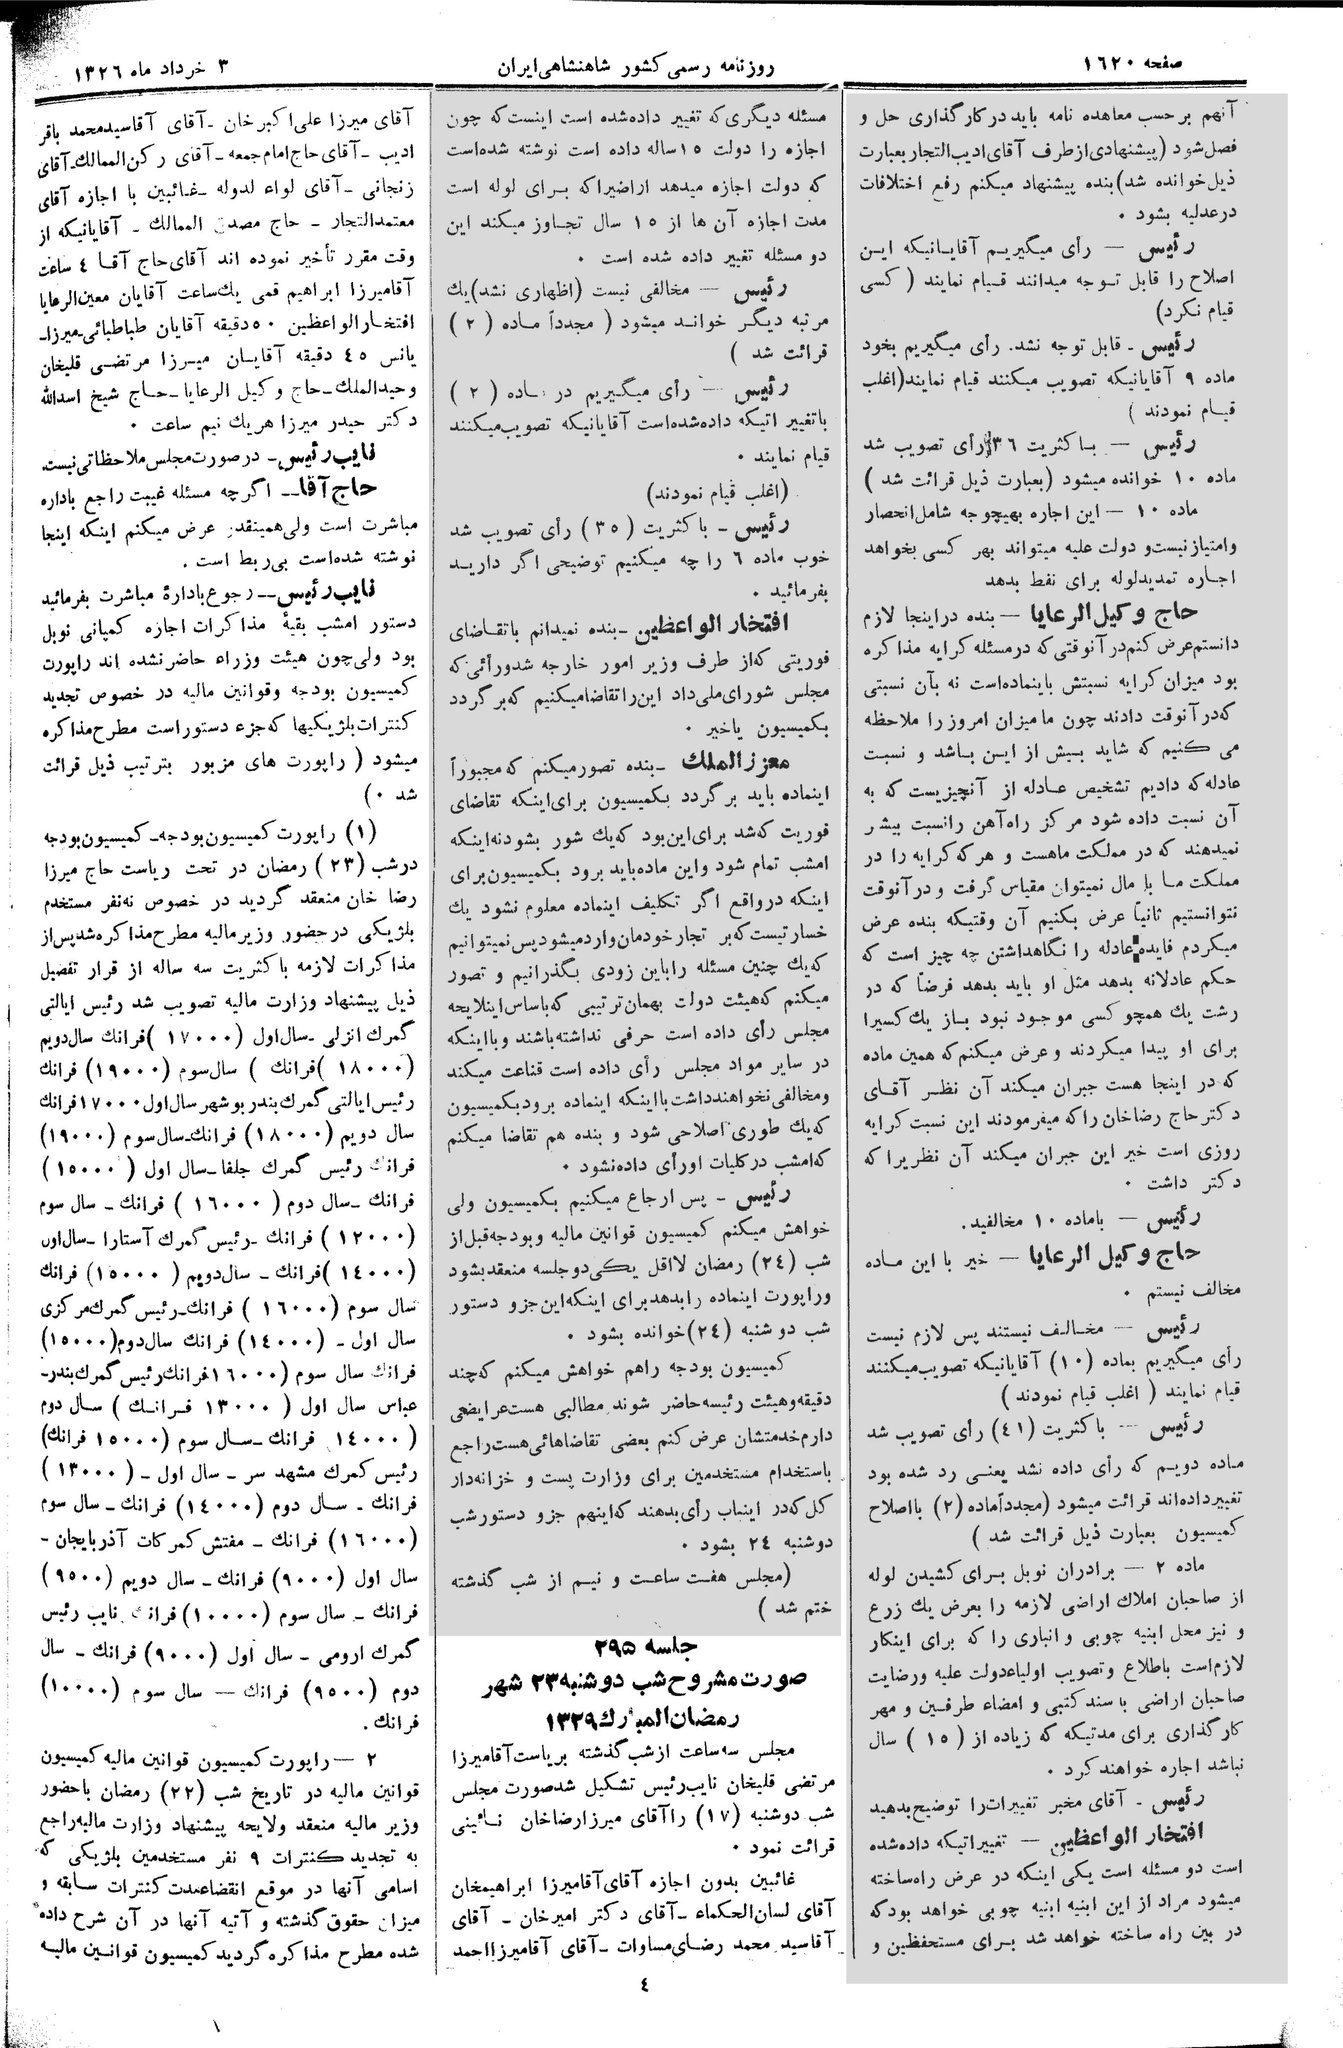 صفحه ١٦٢٠
روزنامه رسمی کشور شاهنشاهی ایران
٣ خرداد ماه ١٣٢٦
آنهم برحسب معاهده نامه باید در کارگذاری حل و
فصل شود (پیشنهادی از طرف آقای ادیب التجار بعبارت
ذیل خوانده شد) بنده پیشنهاد میکنم رفع اختلافات
در عدلیه بشود ٠
رئیس — رأی میگیریم آقایانیکه این
اصلاح را قابل توجه میدانند قیام نمایند ( کسی
قیام نکرد)
رئیس ـ قابل توجه نشد. رأی میگیریم بخود
ماده ٩ آقایانیکه تصویب میکنند قیام نمایند (اغلب
قیام نمودند )
رئیس — با کثریت ٣٦ رأی تصویب شد
ماده ١٠ خوانده میشود (بعبارت ذیل قرائت شد )
ماده ١٠ — این اجاره بهیچوجه شامل انحصار
وامتیاز نیست و دولت علیه میتواند بهر کسی بخواهد
اجاره تمدید لوله برای نفط بدهد
حاج وکیل الرعایا — بنده در اینجا لازم
دانستم عرض کنم در آنوقتی که در مسئله کرایه مذاکره
بود میزان کرایه نسبتش باینماده است نه بآن نسبتی
که در آنوقت دادند چون ما میزان امروز را ملاحظه
می کنیم که شاید بیش از این باشد و نسبت
عادله که دادیم تشخیص عادله از آنچیزیست که به
آن نسبت داده شود مرکز راه آهن را نسبت بیشر
نمیدهند که در مملکت ماهست و هر که کرایه را در
مملکت ما با مال نمیتوان مقیاس گرفت و در آنوقت
نتوانستیم ثانیاً عرض بکنیم آن وقتیکه بنده عرض
میکردم فایده عادله را نگاهداشتن چه چیز است که
حکم عادلانه بدهد مثل او باید بدهد فرضاً که در
رشت یك همچو کسی موجود نبود باز یك کسیرا
برای او پیدا میکردند و عرض میکنم که همین ماده
که در اینجا هست جبران میکند آن نظر آقای
دکتر حاج رضاخان را که میفرمودند این نسبت کرایه
روزی است خیر این جبران میکند آن نظریرا که
دکتر داشت ٠
رئیس — باماده ١٠ مخالفید.
حاج وکیل الرعایا — خیر با این ماده
مخالف نیستم ٠
رئیس — مخالف نیستند پس لازم نیست
رأی میگیریم بماده (١٠) آقایانیکه تصویب میکنند
قیام نمایند ( اغلب قیام نمودند )
رئیس — با کثریت (٤١) رأی تصویب شد
ماده دویم که رأی داده نشد یعنی رد شده بود
تغییر داده اند قرائت میشود (مجدداً ماده (٢) با اصلاح
کمیسیون بعبارت ذیل قرائت شد )
ماده ٢ — برادران نوبل برای کشیدن لوله
از صاحبان املاك اراضی لازمه را بعرض یك زرع
و نیز محل ابنیه چوبی و انباری را که برای اینکار
لازم است باطلاع و تصویب اولیاء دولت علیه و رضایت
صاحبان اراضی با سند کتبی و امضاء طرفین و مهر
کارگذاری برای مدتیکه که زیاده از ( ١٥ ) سال
نباشد اجاره خواهند کرد ٠
رئیس ـ آقای مخبر تغییرات را توضیح بدهید
افتخار الواعظین — تغییراتیکه داده شده
است دو مسئله است یکی اینکه در عرض راه ساخته
میشود مراد از این ابنیه ابنیه چوبی خواهد بود که
در بین راه ساخته خواهد شد برای مستحفظین و
مسئله دیگری که تغییر داده شده است اینست که چون
اجازه را دولت ١٥ ساله داده است نوشته شده است
که دولت اجازه میدهد اراضیرا که برای لوله است
مدت اجازه آن ها از ١٥ سال تجاوز میکند این
دو مسئله تغییر داده شده است ٠
رئیس — مخالفی نیست (اظهاری نشد) یك
مرتبه دیگر خوانده میشود ( مجدداً ماده ( ٢ )
قرائت شد )
رئیس — رأی میگیریم در ماده ( ٢ )
با تغییر اتیکه داده شده است آقایانیکه تصویب میکنند
قیام نمایند ٠
(اغلب قیام نمودند)
رئیس ـ با کثریت ( ٣٥ ) رأی تصویب شد
خوب ماده ٦ را چه میکنیم توضیحی اگر دارید
بفرمائید ٠
افتخار الواعظین ـ بنده نمیدانم با تقاضای
فوریتی که از طرف وزیر امور خارجه شد و رأئی که
مجلس شورای ملی داد این را تقاضا میکنیم که برگردد
بکمیسیون یا خیر ٠
معزز الملك ـ بنده تصور میکنم که مجبوراً
اینماده باید برگردد بکمیسیون برای اینکه تقاضای
فوریت که شد برای این بود که یك شور بشود نه اینکه
امشب تمام شود و این ماده باید برود بکمیسیون برای
اینکه در واقع اگر تکلیف اینماده معلوم نشود یك
خسارتیست که بر تجار خودمان وارد میشود پس نمیتوانیم
که یك چنین مسئله را باین زودی بگذرانیم و تصور
میکنم که هیئت دولت بهمان ترتیبی که باساس این لایحه
مجلس رأی داده است حرفی نداشته باشند و با اینکه
در سایر مواد مجلس رأی داده است قناعت میکند
و مخالفی نخواهند داشت با اینکه اینماده برود بکمیسیون
که یك طوری اصلاحی شود و بنده هم تقاضا میکنم
که امشب در کلیات او رأی داده نشود ٠
رئیس ـ پس ارجاع میکنیم بکمیسیون ولی
خواهش میکنم کمیسیون قوانین مالیه و بودجه قبل از
شب (٢٤) رمضان لااقل یکی دو جلسه منعقد بشود
و راپورت اینماده را بدهد برای اینکه این جزو دستور
شب دو شنبه (٢٤) خوانده بشود ٠
کمیسیون بودجه راهم خواهش میکنم که چند
دقیقه و هیئت رئیسه حاضر شوند مطالبی هست عرایضی
دارم خدمتشان عرض کنم بعضی تقاضاهائی هست راجع
باستخدام مستخدمین برای وزارت پست و خزانه دار
کل که در اینباب رأی بدهند که اینهم جزو دستور شب
دوشنبه ٢٤ بشود ٠
(مجلس هفت ساعت و نیم از شب گذشته
ختم شد )
جلسه ٢٩٥
صورت مشروح شب دوشنبه ٢٣ شهر
رمضان المبارك ١٣٢٩
مجلس سه ساعت از شب گذشته بریاست آقامیرزا
مرتضی قلیخان نایب رئیس تشکیل شد صورت مجلس
شب دوشنبه (١٧) را آقای میرزا رضا خان نائینی
قرائت نمود ٠
غائبین بدون اجازه آقای آقامیرزا ابراهیمخان
آقای لسان الحکماء ـ آقای دکتر امیرخان ـ آقای
آقاسید محمد رضای مساوات ـ آقای آقامیرزا احمد
آقای میرزا علی اکبر خان ـ آقای آقاسید محمد باقر
ادیب ـ آقای حاج امام جمعه ـ آقای رکن الممالك ـ آقای
زنجانی ـ آقای لواء لدوله ـ غائبین با اجازه آقای
معتمد التجار ـ حاج مصدق الممالك ـ آقایانیکه از
وقت مقرر تأخیر نموده اند آقای حاج آقا ٤ ساعت
آقامیرزا ابراهیم قمی یك ساعت آقایان معین الرعایا
افتخار الواعظین ٥٠ دقیقه آقایان طباطبائی ـ میرزا ـ
یانس ٤٥ دقیقه آقایان میرزا مرتضی قلیخان
وحید الملك ـ حاج وکیل الرعایا ـ حاج شیخ اسدالله
دکتر حیدر میرزا هریك نیم ساعت ٠
نایب رئیس ـ در صورت مجلس ملاحظاتی نیست
حاج آقا — اگرچه مسئله غیبت راجع باداره
مباشرت است ولی همینقدر عرض میکنم اینکه اینجا
نوشته شده است بی ربط است .
نایب رئیس — رجوع بادارۀ مباشرت بفرمائید
دستور امشب بقیۀ مذاکرات اجازه کمپانی نوبل
بود ولی چون هیئت وزراء حاضر نشده اند راپورت
کمیسیون بودجه وقوانین مالیه در خصوص تجدید
کنترات بلژیکیها که جزء دستور است مطرح مذاکره
میشود ( راپورت های مزبور بترتیب ذیل قرائت
شد ٠)
(١) راپورت کمیسیون بودجه ـ کمیسیون بودجه
درشب (٢٣) رمضان در تحت ریاست حاج میرزا
رضا خان منعقد گردید در خصوص نه نفر مستخدم
بلژیکی در حضور وزیر مالیه مطرح مذاکره شد پس از
مذاکرات لازمه با کثریت سه ساله از قرار تفصیل
ذیل پیشنهاد وزارت مالیه تصویب شد رئیس ایالتی
گمرك انزلی ـ سال اول (١٧٠٠٠ ) فرانك سال دویم
(١٨٠٠٠ ) فرانك ) سال سوم (١٩٠٠٠) فرانك
رئیس ایالتی گمرك بندر بوشهر سال اول ١٧٠٠٠ فرانك
سال دویم (١٨٠٠٠) فرانك ـ سال سوم (١٩٠٠٠)
فرانك رئیس گمرك جلفا ـ سال اول ( ١٥٠٠٠ )
فرانك ـ سال دوم ( ١٦٠٠٠ ) فرانك ـ سال سوم
(١٢٠٠٠ ) فرانك ـ رئیس گمرك آستارا ـ سال اول
(١٤٠٠٠ ) فرانك ـ سال دویم ( ١٥٠٠٠) فرانك
سال سوم (١٦٠٠٠ ) فرانك ـ رئیس گمرك مرکزی
سال اول ـ (١٤٠٠٠) فرانك سال دوم (١٥٠٠٠)
فرانك سال سوم (١٦٠٠٠ فرانك رئیس گمرك بندر ـ
عباس سال اول ( ١٣٠٠٠ فرانك ) سال دوم
( ١٤٠٠٠ فرانك ـ سال سوم (١٥٠٠٠ فرانك)
رئیس گمرك مشهد سر ـ سال اول ـ (١٣٠٠٠ )
فرانك ـ سال دوم (١٤٠٠٠) فرانك ـ سال سوم
(١٦٠٠٠) فرانك ـ مفتش گمرکات آذربایجان ـ
سال اول (٩٠٠٠) فرانك ـ سال دویم (٩٥٠٠)
فرانك ـ سال سوم (١٠٠٠٠) فرانك نایب رئیس
گمرك ارومی ـ سال اول (٩٠٠٠) فرانك ـ سال
دوم (٩٥٠٠) فرانك — سال سوم (١٠٠٠٠)
فرانك .
٢ — راپورت کمیسیون قوانین مالیه کمیسیون
قوانین مالیه در تاریخ شب (٢٢) رمضان باحضور
وزیر مالیه منعقد ولایحه پیشنهاد وزارت مالیه راجع
به تجدید کنترات ٩ نفر مستخدمین بلژیکی که
اسامی آنها در موقع انقضاء مدت کنترات سابقه و
میزان حقوق گذشته و آتیه آنها در آن شرح داده
شده مطرح مذاکره گردید کمیسیون قوانین مالیه
٤